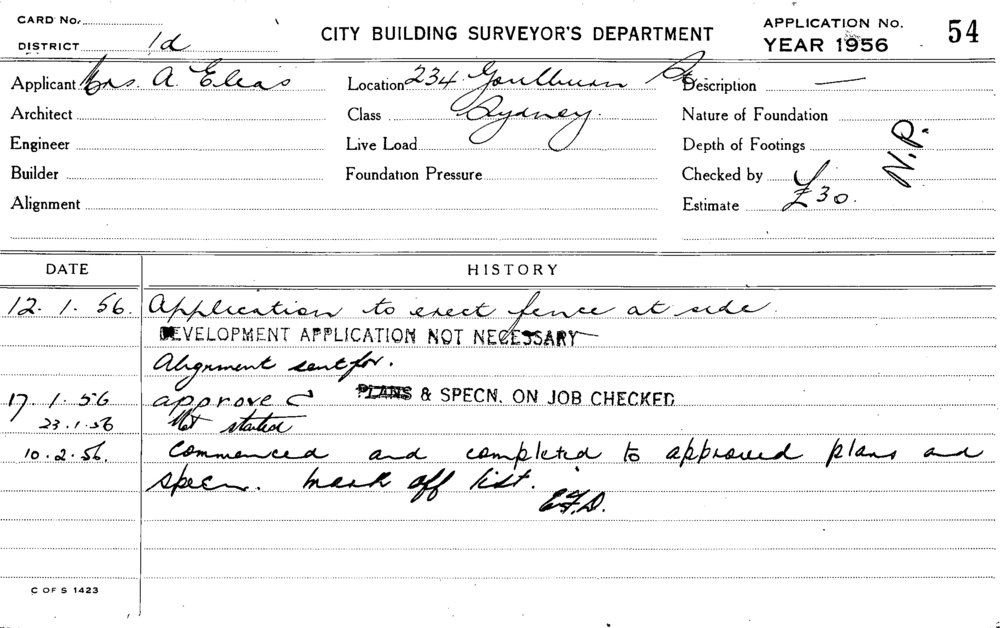 CARD No.
DISTRICT 1d
CITY BUILDING SURVEYOR'S DEPARTMENT
APPLICATION No. 54
YEAR 1956
Applicant Mrs. A. Elias
Location 234 Goulburn St
Description —
Architect
Class Sydney.
Nature of Foundation
Engineer
Live Load
Depth of Footings
N.P.
Builder
Foundation Pressure
Checked by
Alignment
Estimate £30.
DATE HISTORY
12.1.56. Application to erect fence at side.
DEVELOPMENT APPLICATION NOT NECESSARY
Alignment sent for.
17.1.56 approved PLANS & SPECN. ON JOB CHECKED
23.1.56 Not started
10.2.56. Commenced and completed to approved plans and
specn. Mark off list.
E.F.D.
C OF S 1423